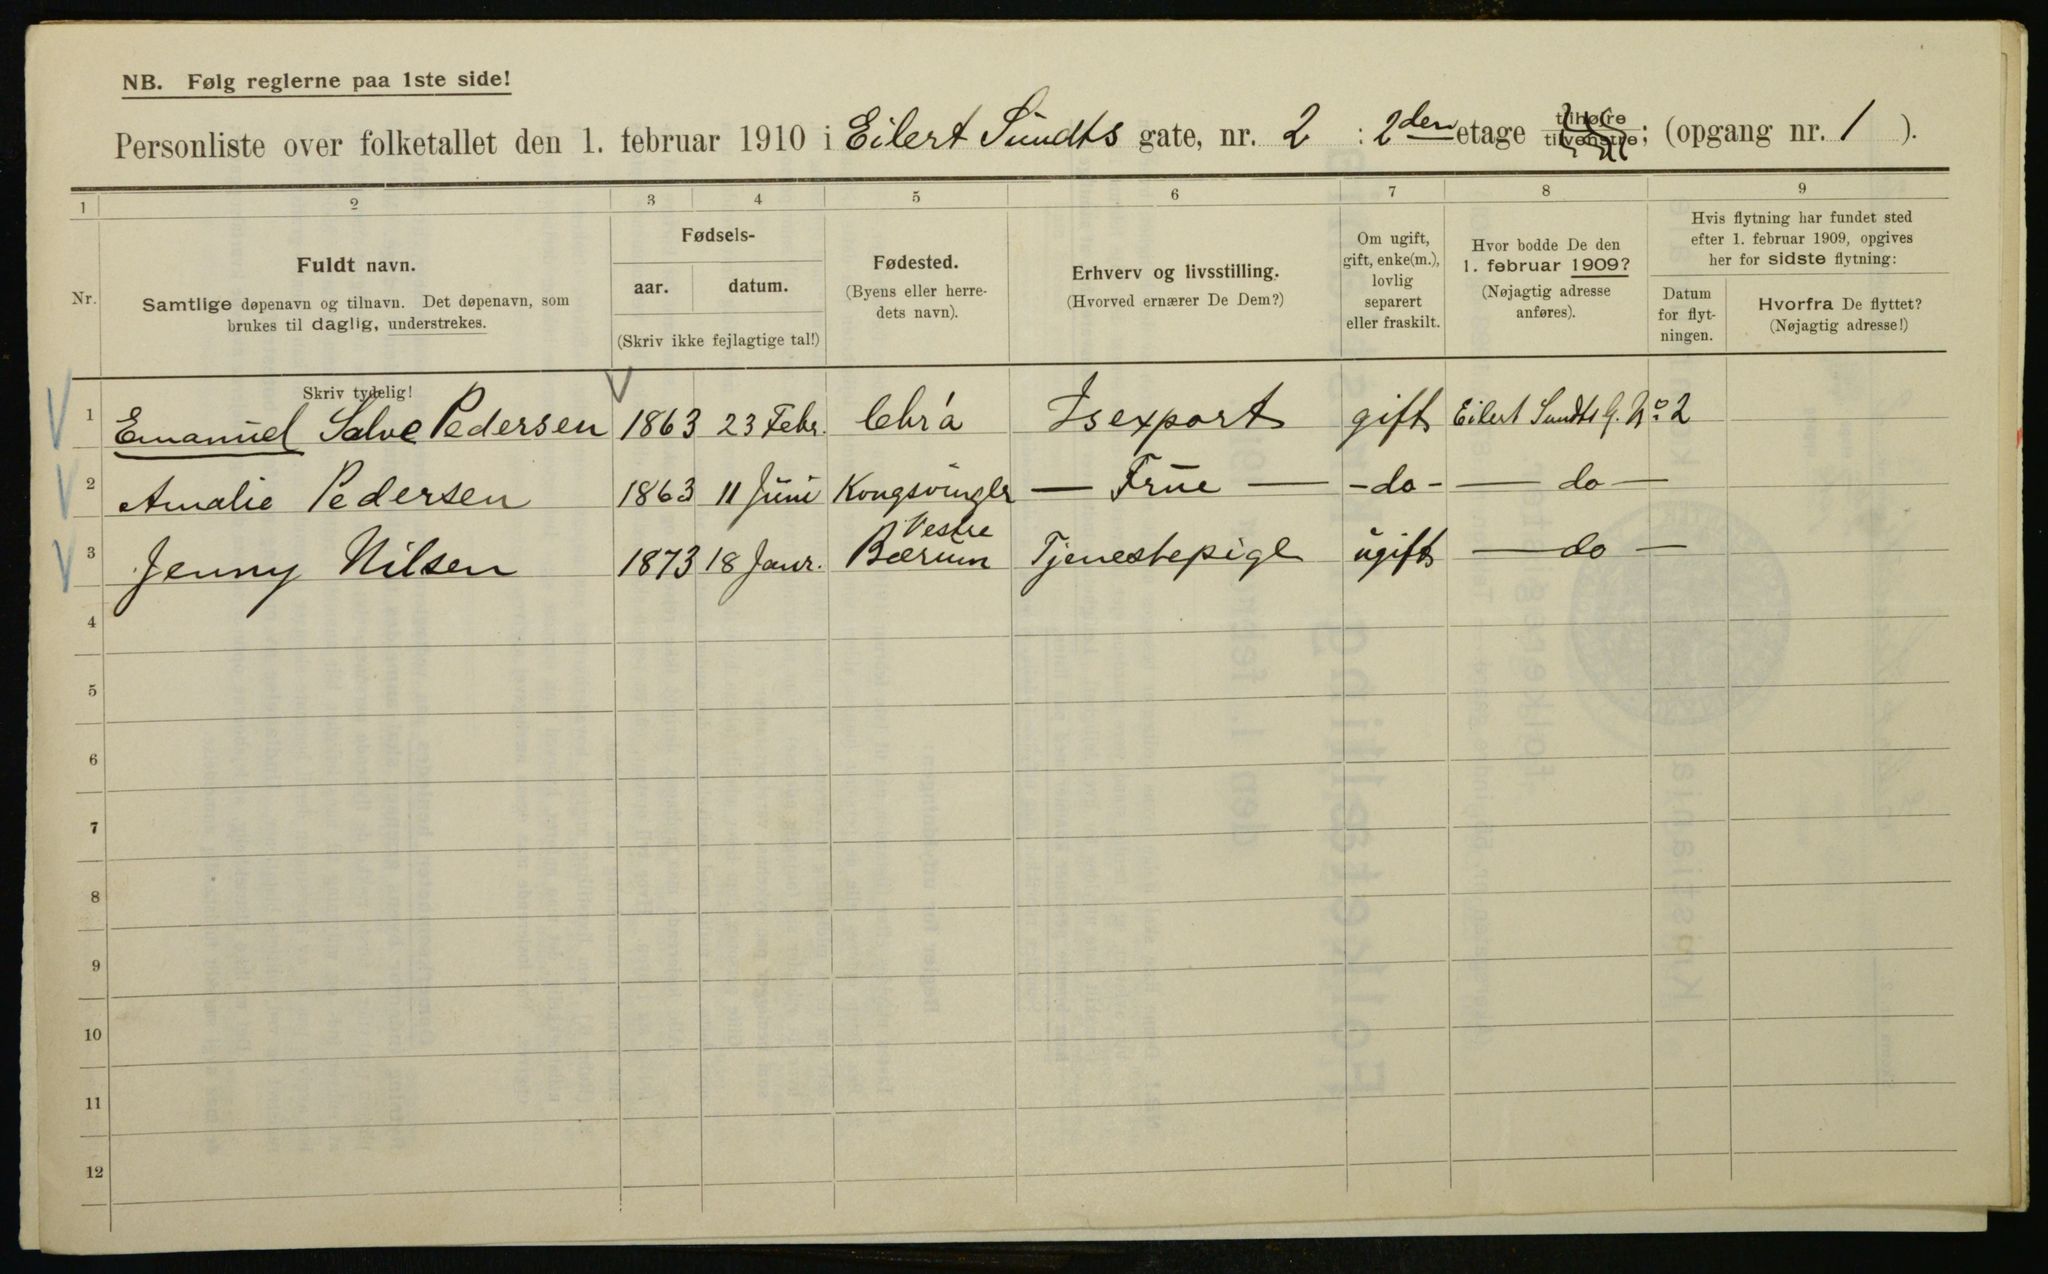 NB. Følg reglerne paa 1ste side!
Personliste over folketallet den 1. februar 1910 i Eilert Sundts gate, nr. 2 : 2den etage tilhøire tilvenstre; (opgang nr. 1 ).
1 2 3 4 5 6 7 8 9
Nr.
Fuldt navn.
Samtlige døpenavn og tilnavn. Det døpenavn, som
brukes til daglig, understrekes.
Fødsels-
aar. datum.
(Skriv ikke feilagtige tal!)
Fødested.
(Byens eller herre-
dets navn).
Erhverv og livsstilling.
(Hvorved ernærer De Dem?)
Om ugift,
gift, enke(m.),
lovlig
separert
eller fraskilt.
Hvor bodde De den
1. februar 1909?
(Nøjagtig adresse
anføres).
Hvis flytning har fundet sted
efter 1. februar 1909, opgives
her for sidste flytning:
Datum
for flyt-
ningen.
Hvorfra De flyttet?
(Nøjagtig adresse!)
Skriv tydelig!
1 Emanuel Salve Pedersen 1863 23 Febr. Chr.a Isexport gift Eilert Sundts G. No 2
2 Amalie Pedersen 1863 11 Juni Kongsvinger — Frue — - do - — do —
3 Jenny Nilsen 1873 18 Janr. Vestre Bærum Tjenestepige ugift — do —
4
5
6
7
8
9
10
11
12